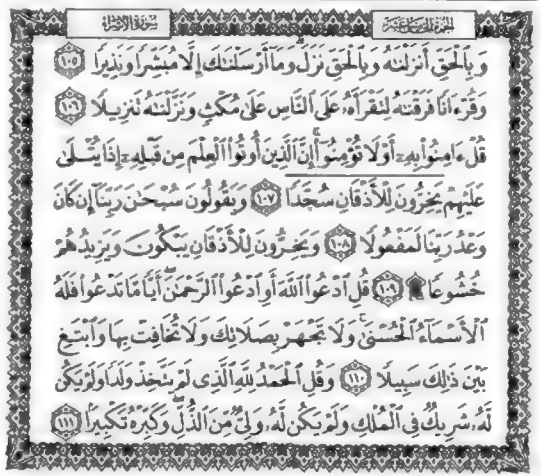 الجزء الخامس عشر
سورة الإسراء
وَبِالْحَقِّ أَنزَلْنَٰهُ وَبِالْحَقِّ نَزَلَ وَمَا أَرْسَلْنَٰكَ إِلَّا مُبَشِّرًا وَنَذِيرًا ١٠٥
وَقُرْءَانًا فَرَقْنَٰهُ لِتَقْرَأَهُۥ عَلَى ٱلنَّاسِ عَلَىٰ مُكْثٍ وَنَزَّلْنَٰهُ تَنزِيلًا ١٠٦
قُلْ ءَامِنُوا۟ بِهِۦٓ أَوْ لَا تُؤْمِنُوٓا۟ إِنَّ ٱلَّذِينَ أُوتُوا۟ ٱلْعِلْمَ مِن قَبْلِهِۦٓ إِذَا يُتْلَىٰ
عَلَيْهِمْ يَخِرُّونَ لِلْأَذْقَانِ سُجَّدًا ١٠٧ وَيَقُولُونَ سُبْحَٰنَ رَبِّنَآ إِن كَانَ
وَعْدُ رَبِّنَا لَمَفْعُولًا ١٠٨ وَيَخِرُّونَ لِلْأَذْقَانِ يَبْكُونَ وَيَزِيدُهُمْ
خُشُوعًا ١٠٩ قُلِ ٱدْعُوا۟ ٱللَّهَ أَوِ ٱدْعُوا۟ ٱلرَّحْمَٰنَ أَيًّا مَّا تَدْعُوا۟ فَلَهُ
ٱلْأَسْمَآءُ ٱلْحُسْنَىٰ وَلَا تَجْهَرْ بِصَلَاتِكَ وَلَا تُخَافِتْ بِهَا وَٱبْتَغِ
بَيْنَ ذَٰلِكَ سَبِيلًا ١١٠ وَقُلِ ٱلْحَمْدُ لِلَّهِ ٱلَّذِى لَمْ يَتَّخِذْ وَلَدًا وَلَمْ يَكُن
لَّهُۥ شَرِيكٌ فِى ٱلْمُلْكِ وَلَمْ يَكُن لَّهُۥ وَلِىٌّ مِّنَ ٱلذُّلِّ وَكَبِّرْهُ تَكْبِيرًۢا ١١١